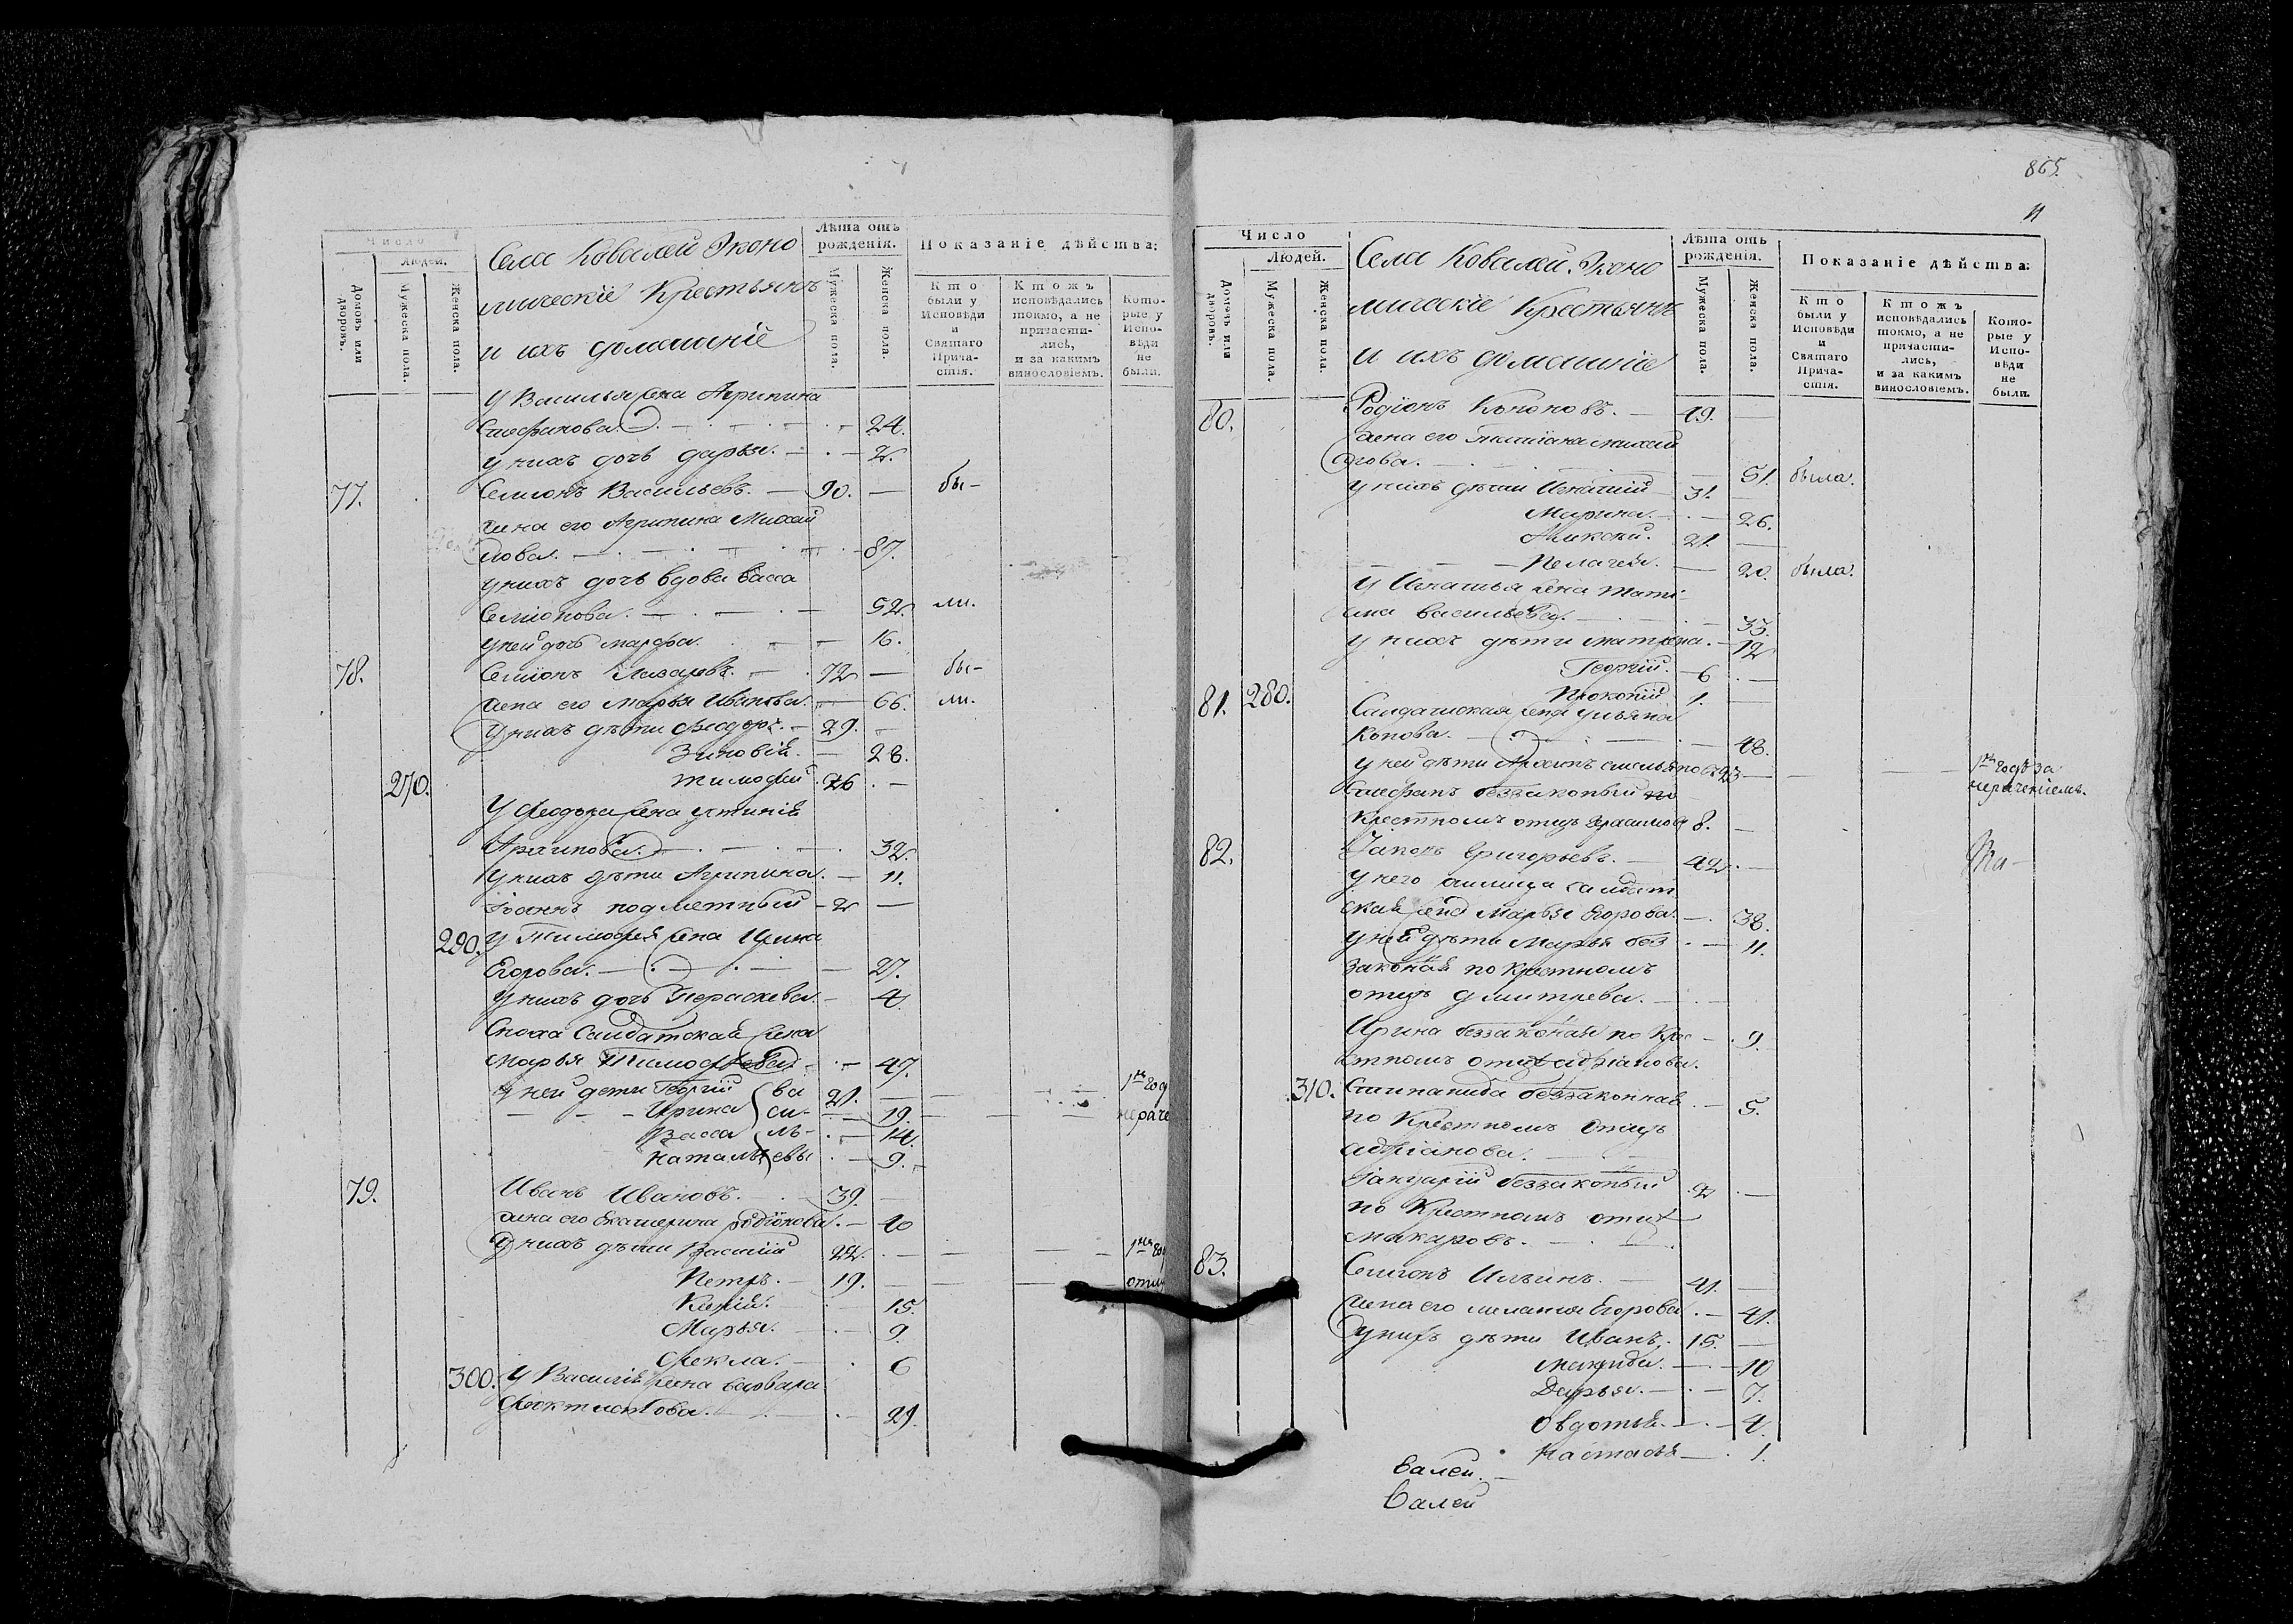 865.
Число
Людей.
Домовъ или дворовъ.
Мужеска пола.
Женска пола.
Села Ковалей Эконо
мическіе Крестьянѣ
и ихъ домашніе
Лѣта отъ рожденія.
Мужеска пола.
Женска пола.
Показаніе дѣйства:
Кто были у Исповѣди и Святаго Причастія.
Ктожъ исповѣдались токмо, а не причастились, и за какимъ винословіемъ.
Которые у Исповѣди не были.
У Василья жена Агрипина
Стефанова. 24.
у нихъ дочь дарья. 2.
77. Семіонъ Васильевъ. 90. бы-
жена его Агрипина Михай
лова. 87.
у нихъ дочь вдова васса
Семіонова. 52. ли.
у ней дочь марфа. 16.
78. Семіонъ Лазаревъ. 72 бы-
жена его Марья Иванова. 66. ли.
у нихъ дѣти Феодоръ. 29.
Зиновія. 28.
270. тимофей 26
У Феодора жена устинія
Архипова. 32.
у нихъ дѣти Агрипина. 11.
Іоаннъ подметный 2
290. у Тимофея жена Ирина
Егорова. 27.
у нихъ дочь Параскева. 4.
Сноха Салдатская жена
Марья Тимофѣева. 47.
у ней дети Георгій 21. 1й год
Ирина 19. нераче
Васса 14.
Наталья 9.
васильевы
79. Иванъ Ивановъ. 39.
жена его Екатерина родіонова. 40
у нихъ дѣти Василій 22. 1й год
Петръ. 19.
15.
Марья. 9.
Фекла. 6
300. у Василія жена варвара
Феоктистова. 29.
Число
Людей.
Домовъ или дворовъ.
Мужеска пола.
Женска пола.
Села Ковалей. Эконо
мическіе Крестьянѣ
и ихъ домашніе
Лѣта отъ рожденія.
Мужеска пола.
Женска пола.
Показаніе дѣйства:
Кто были у Исповѣди и Святаго Причастія.
Ктожъ исповѣдались токмо, а не причастились, и за какимъ винословіемъ.
Которые у Исповѣди не были.
80. Родіонъ Кононовъ. 49.
жена его Татіана михай
лова. 51. была.
у нихъ дѣти Игнатій 31.
Марина. 26.
Алексей. 21.
Пелагея. 20. была.
У Игнатья жена тати-
ана васильева. 33.
у нихъ дѣти матрона. 12
Георгій. 6
Прокопій 1.
81. 280. Салдатская жена ульяна
Конова. 48.
у ней дѣти Архипъ 23 1й годъ за
нераченіемъ.
Стефанъ беззаконый
крестномъ отцѣ герасимовъ 8.
82. Іаковъ Григорьевъ. 42.
у него салдат
ская жена Марья Егорова. 38.
у ней дѣти Марья без 11.
законая по крестномъ
отцѣ дмитрева.
Ирина беззаконая по Кре 9.
стномъ отцѣ адріанова.
310. Степанида беззаконная 5.
по Крестномъ отцѣ
адріанова.
Іануарій беззаконый 2
по Крестномъ отцѣ
макаровъ.
83. Семіонъ Ильинъ. 41.
жена его меланья Егорова 41.
у нихъ дѣти Иванъ. 15.
10
Дарья. 7.
Овдотья. 4.
Настасья 1.
валей.
валей